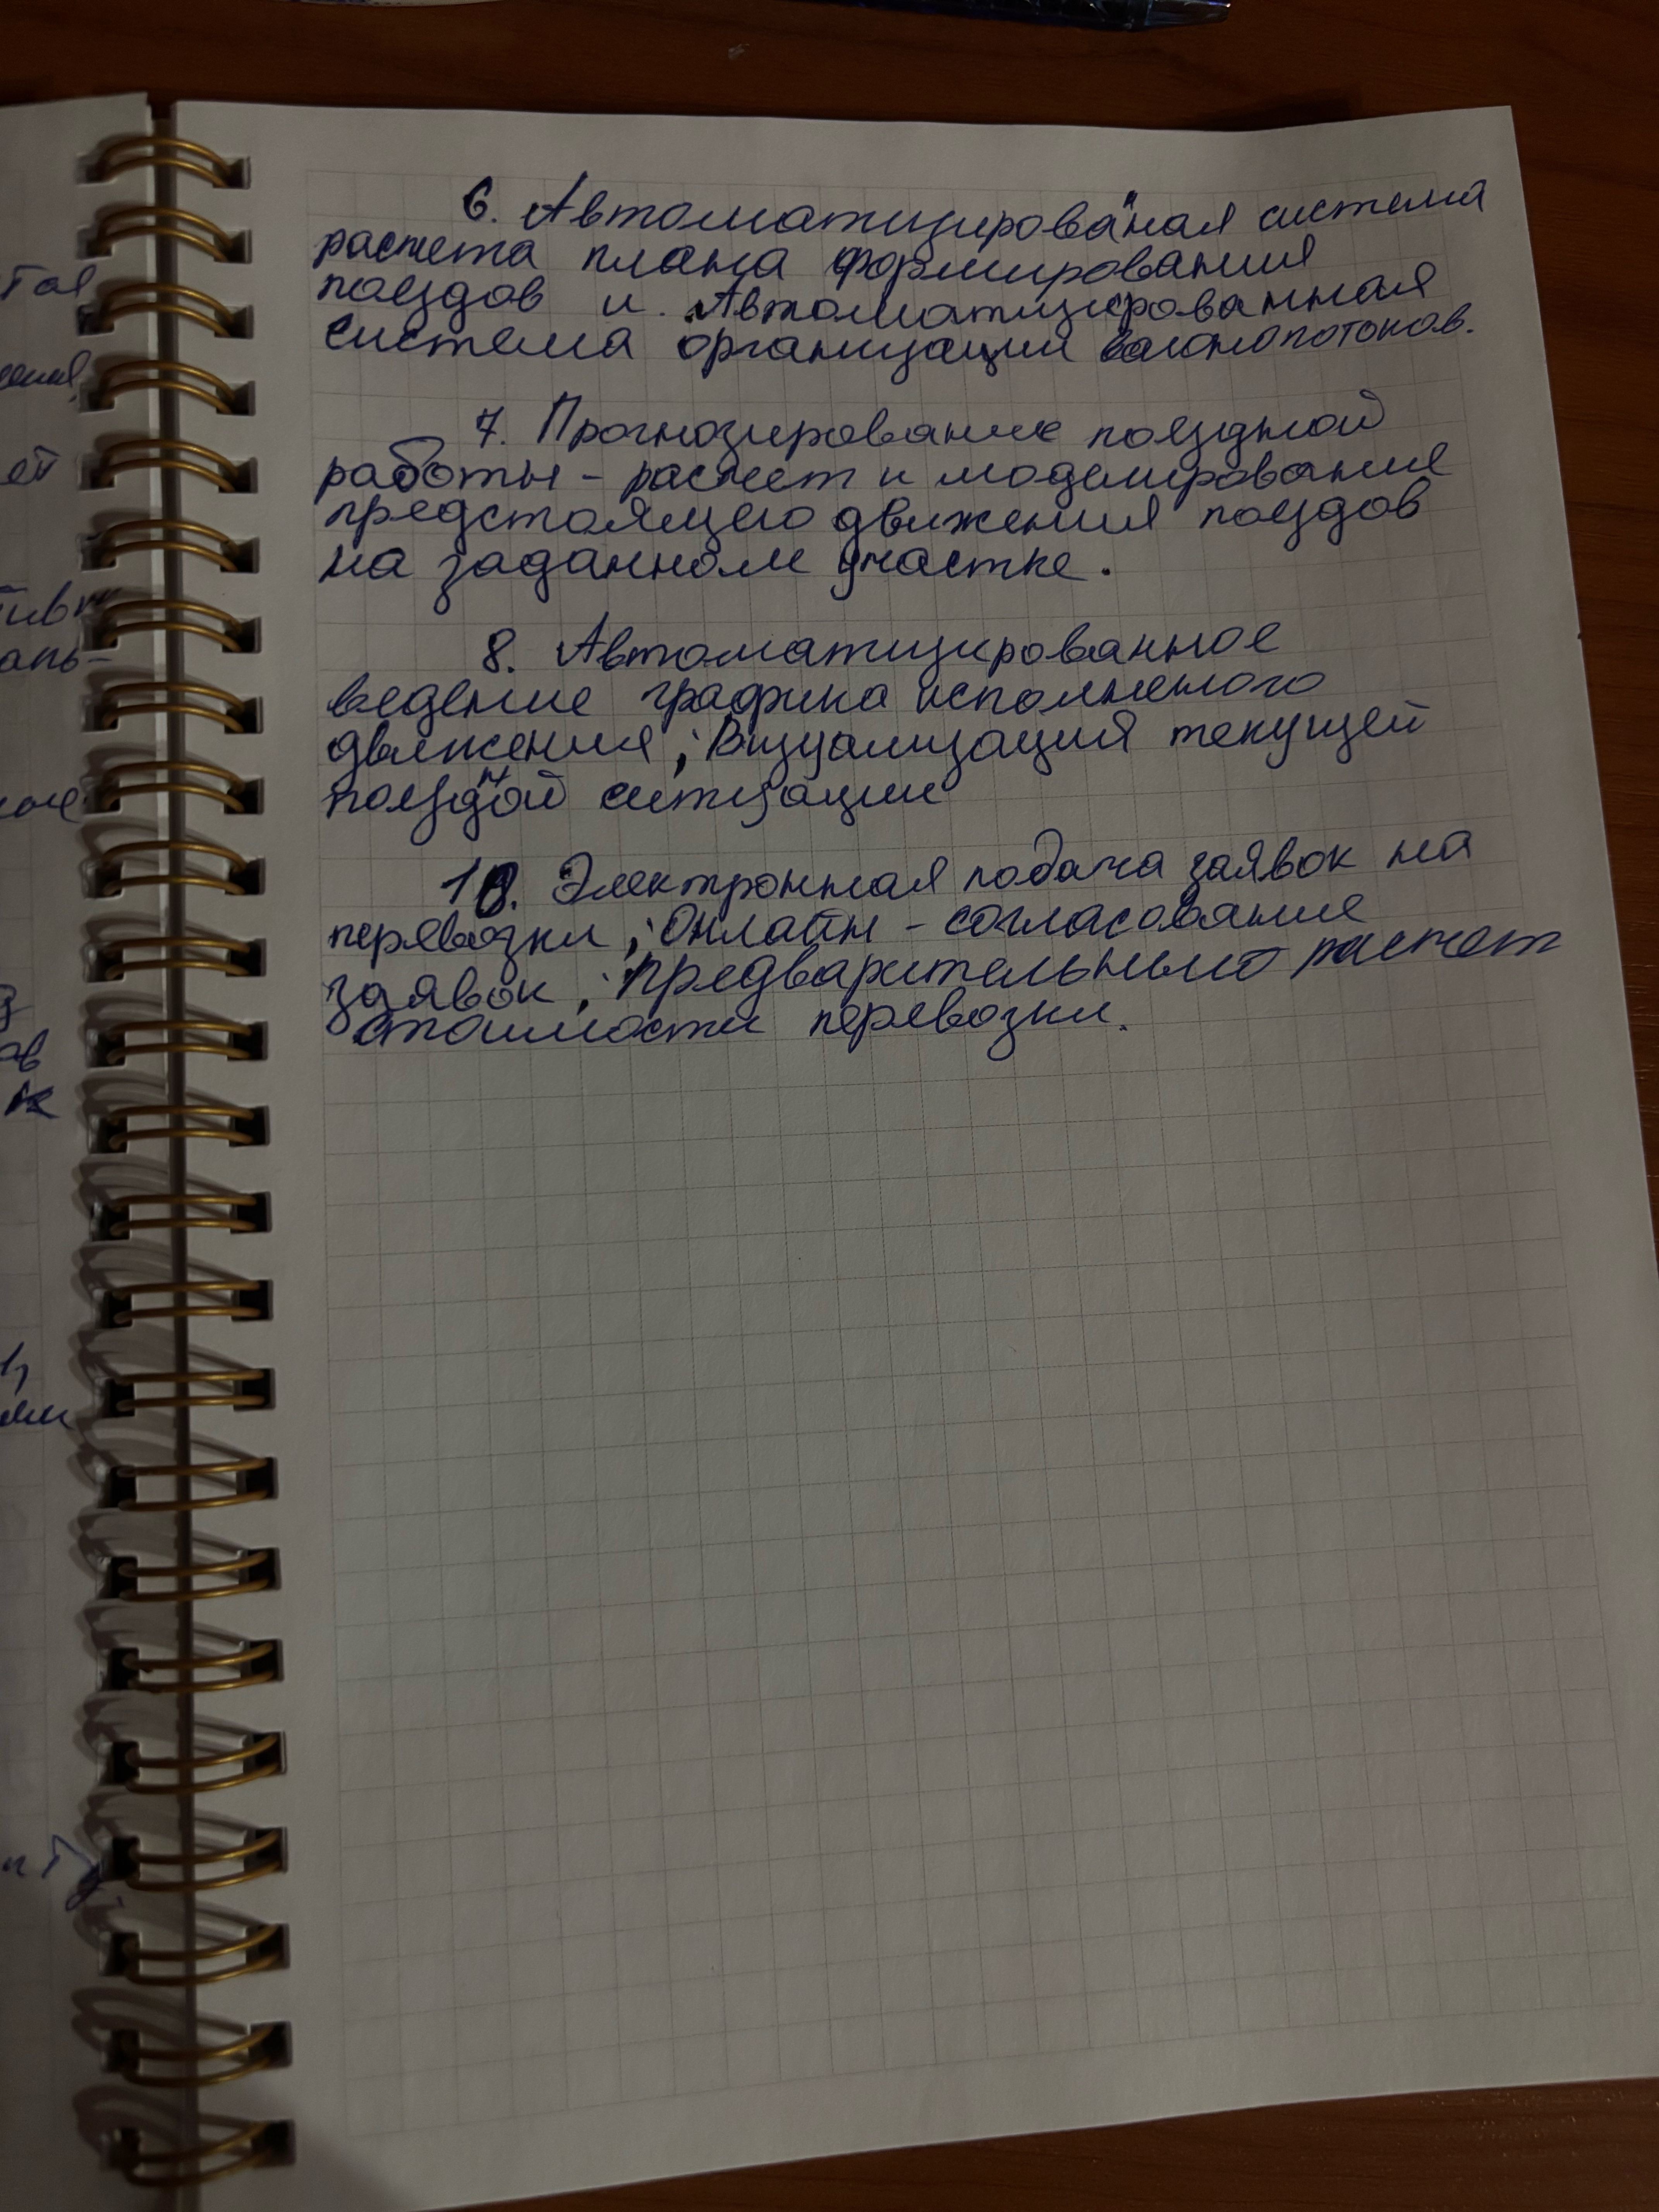 6. Автоматизированая система
расчета плана формирования
поездов и Автоматизированная
система организации вагонопотоков.
7. Прогнозирование поездной
работы - расчет и моделирование
предстоящего движения поездов
на заданном участке.
8. Автоматизированное
ведение графика исполненого
движения; Визуализация текущей
поездной ситуации
10. Электронная подача заявок на
перевозки; Онлайн - согласование
заявок; Предварительный расчет
стоимости перевозки.